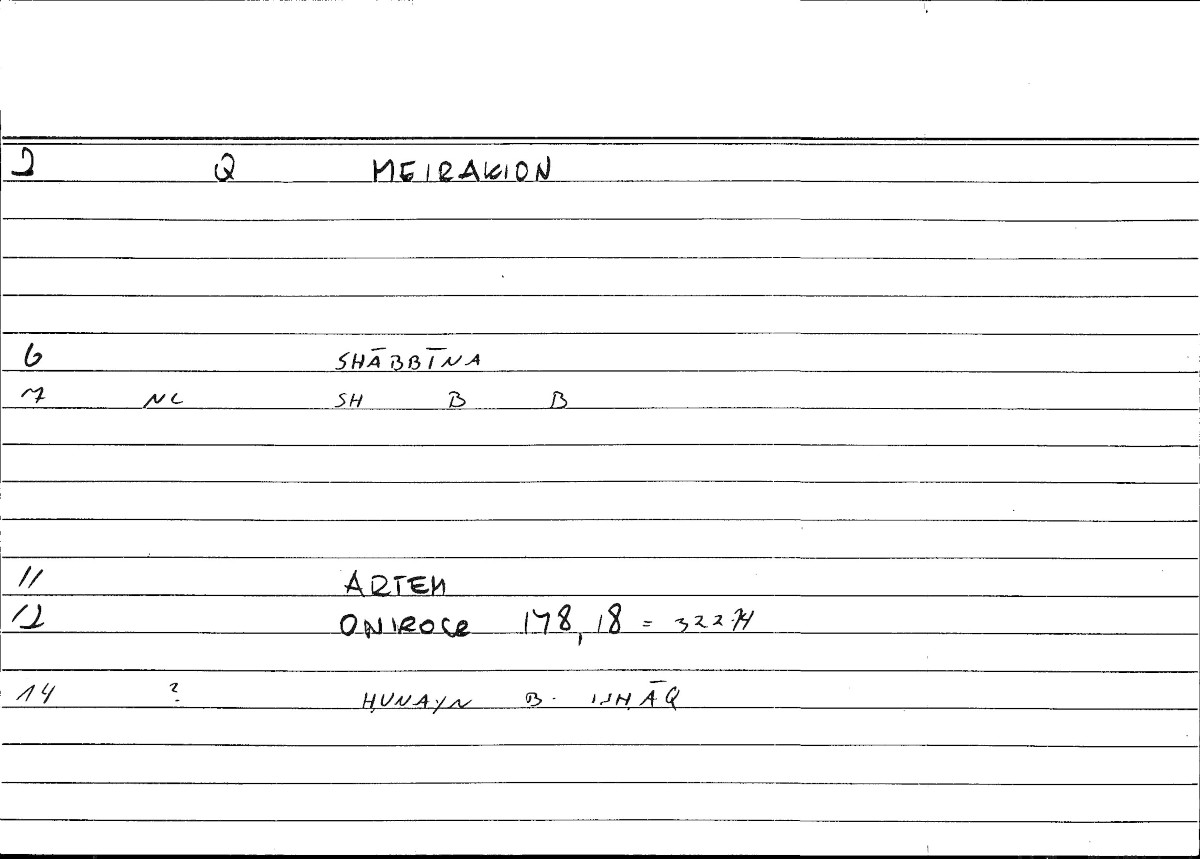 2 Q MEIRAKION
6 SHĀBBĪNA
7 NC SH B B
11 ARTEM
12 ONIROCR 178,18 = 322 7f
14 ? ḤUNAYN B. ISḤĀQ